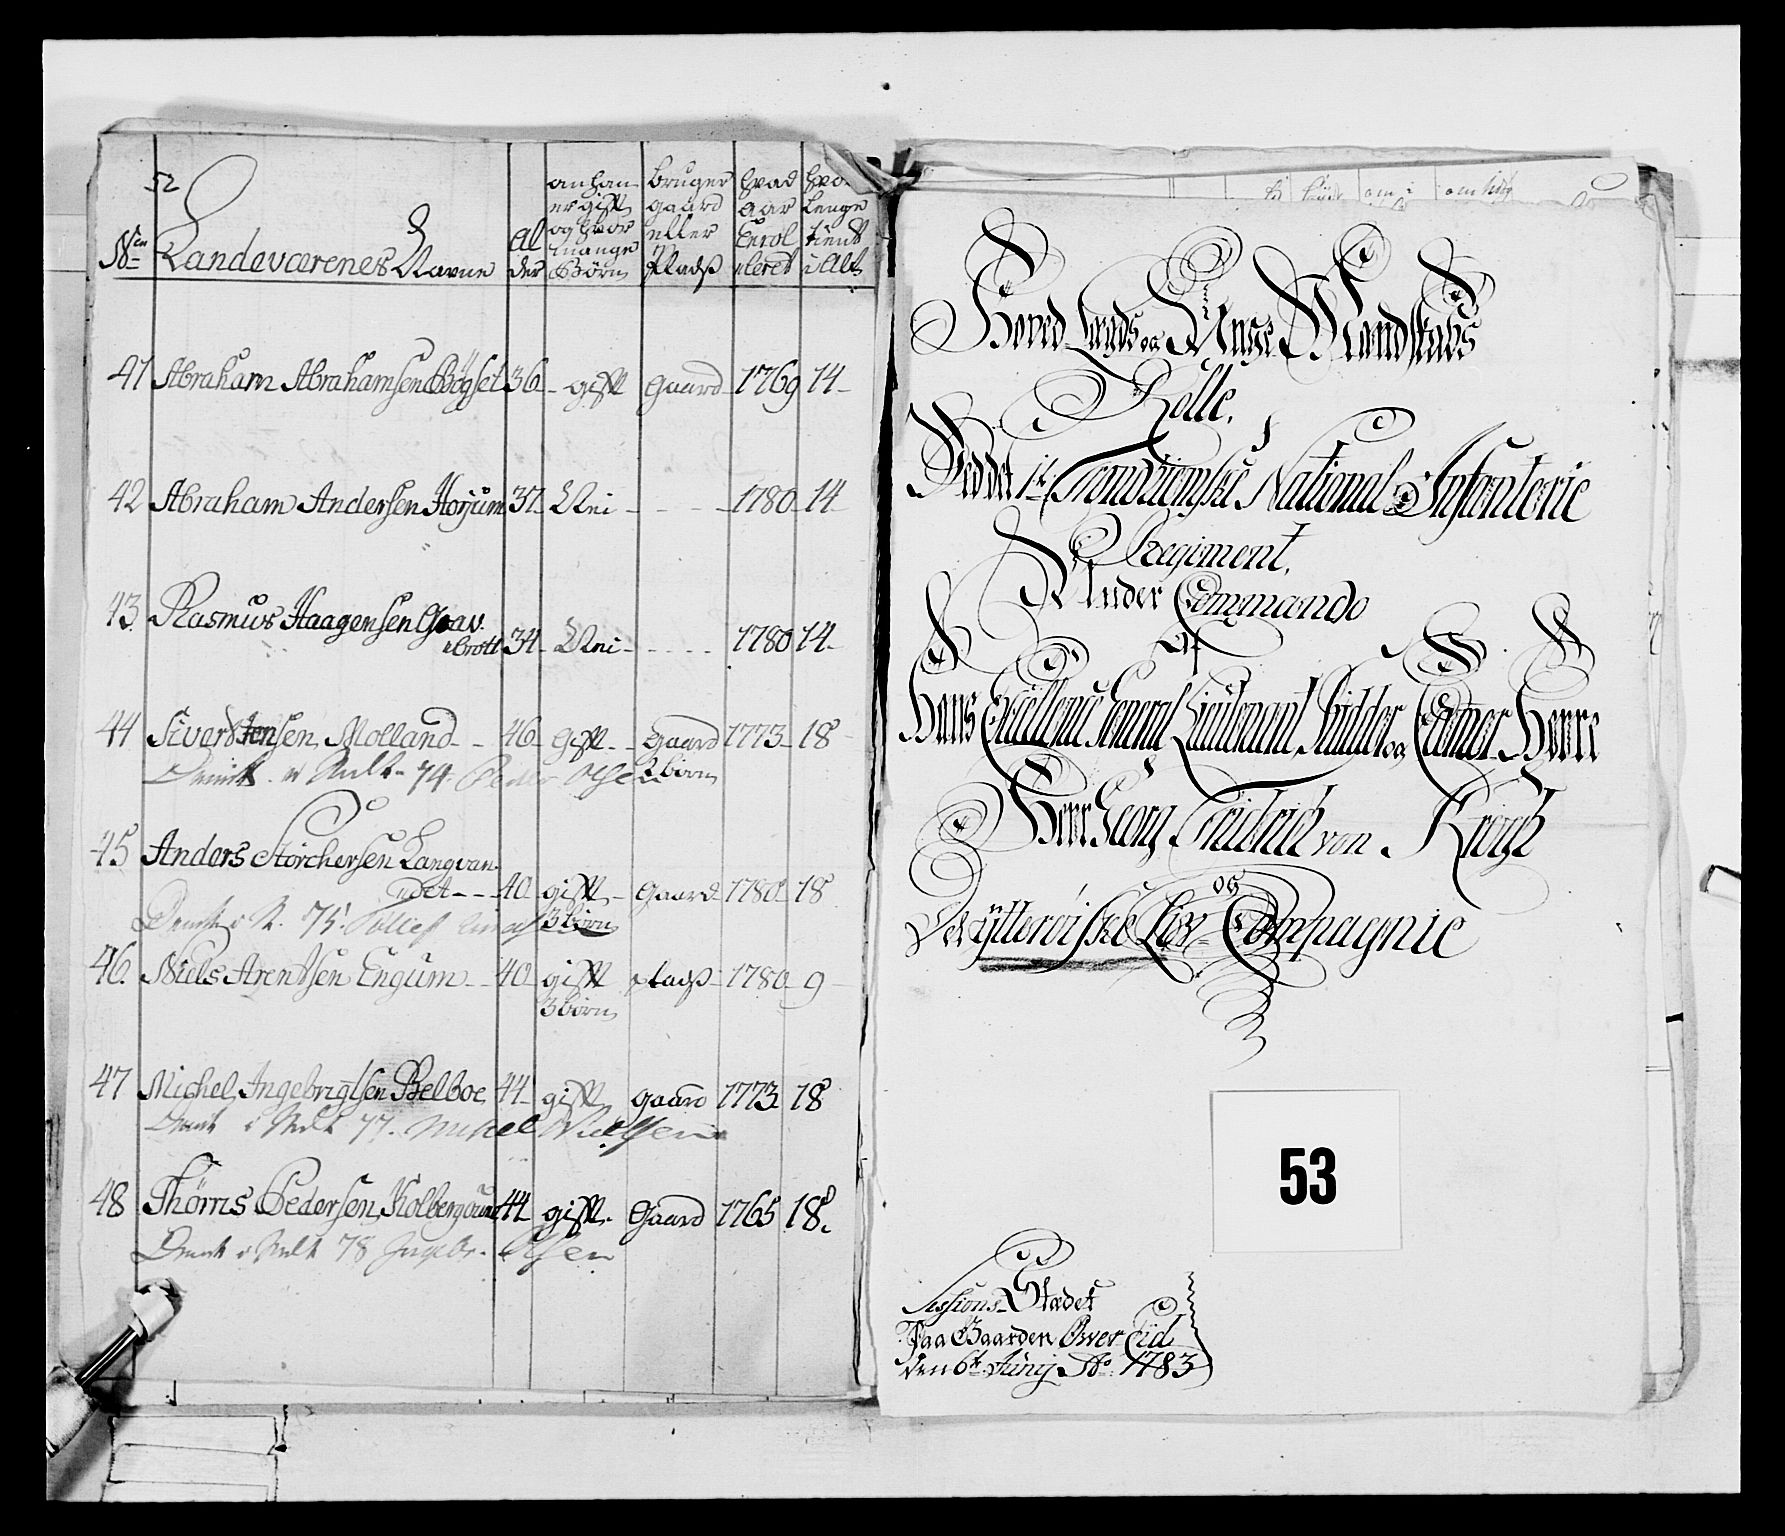 52
No Landeværenes Navne
Al
der
anhan
er gift
og hvor
mange
Børn
bruger
gaard
eller
Pladß
hvad
aar
Enrol
leret
hvor
lenge
tient
i Alt
41 Abraham Abrahamsen Bøgset 36 - gift Gaard 1769 14
42 Abraham Andersen Horjum 37 Nei - - - 1780 14
43 Rasmus Haagensen Grav
brott 34 Nei - - - 1780 14
44 Siver Jensen Molland - - 46 Gift - Gaard 1773 18
i Rult 74 Peder Olsen
2 børn
45 Anders Storchersen Langvan
det - - 40 gift - Gaard 1780 18
i R. 75
3 børn
46. Niels Arentsen Engum - - 40 gift pladß 1780 9
3 børn
47 Michel Ingebrigtsen Belboe 44 gift gaard 1773 18
i Rult 77. Mikel Nielsen
48 Thøms Pedersen Kolbergaune 44 gift. Gaard 1765 18.
i Rult 78 Ingebr. Olsen
Hoved Laugds og Unge Mandskabs
Rolle.
Ved det 1te Trondhiemske National Infanterie
Regiment.
Under Commando
Af
Hans Excellence General Lieutenant, Ridder og Camer Herre
Herr Georg Fridrich von Krogh
og
Det ÿtterøiske Liv-Compagnie
53
Sessions Stædet
Paa Gaarden Over Eid
den 6te Junij Ao 1783